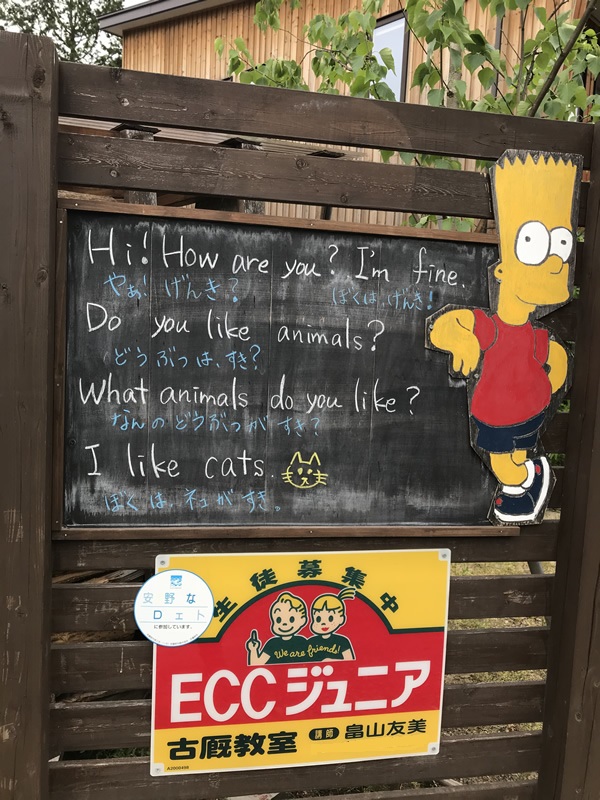 Hi! How are you? I'm fine.
やぁ! げんき? ぼくは、げんき!
Do you like animals?
どうぶつは、すき?
What animals do you like?
なんのどうぶつがすき?
I like cats.
ぼくは、ネコがすき。
生徒募集中
安野な
に参加しています。
We are friends!
ECCジュニア
古厩教室 講師 畠山友美